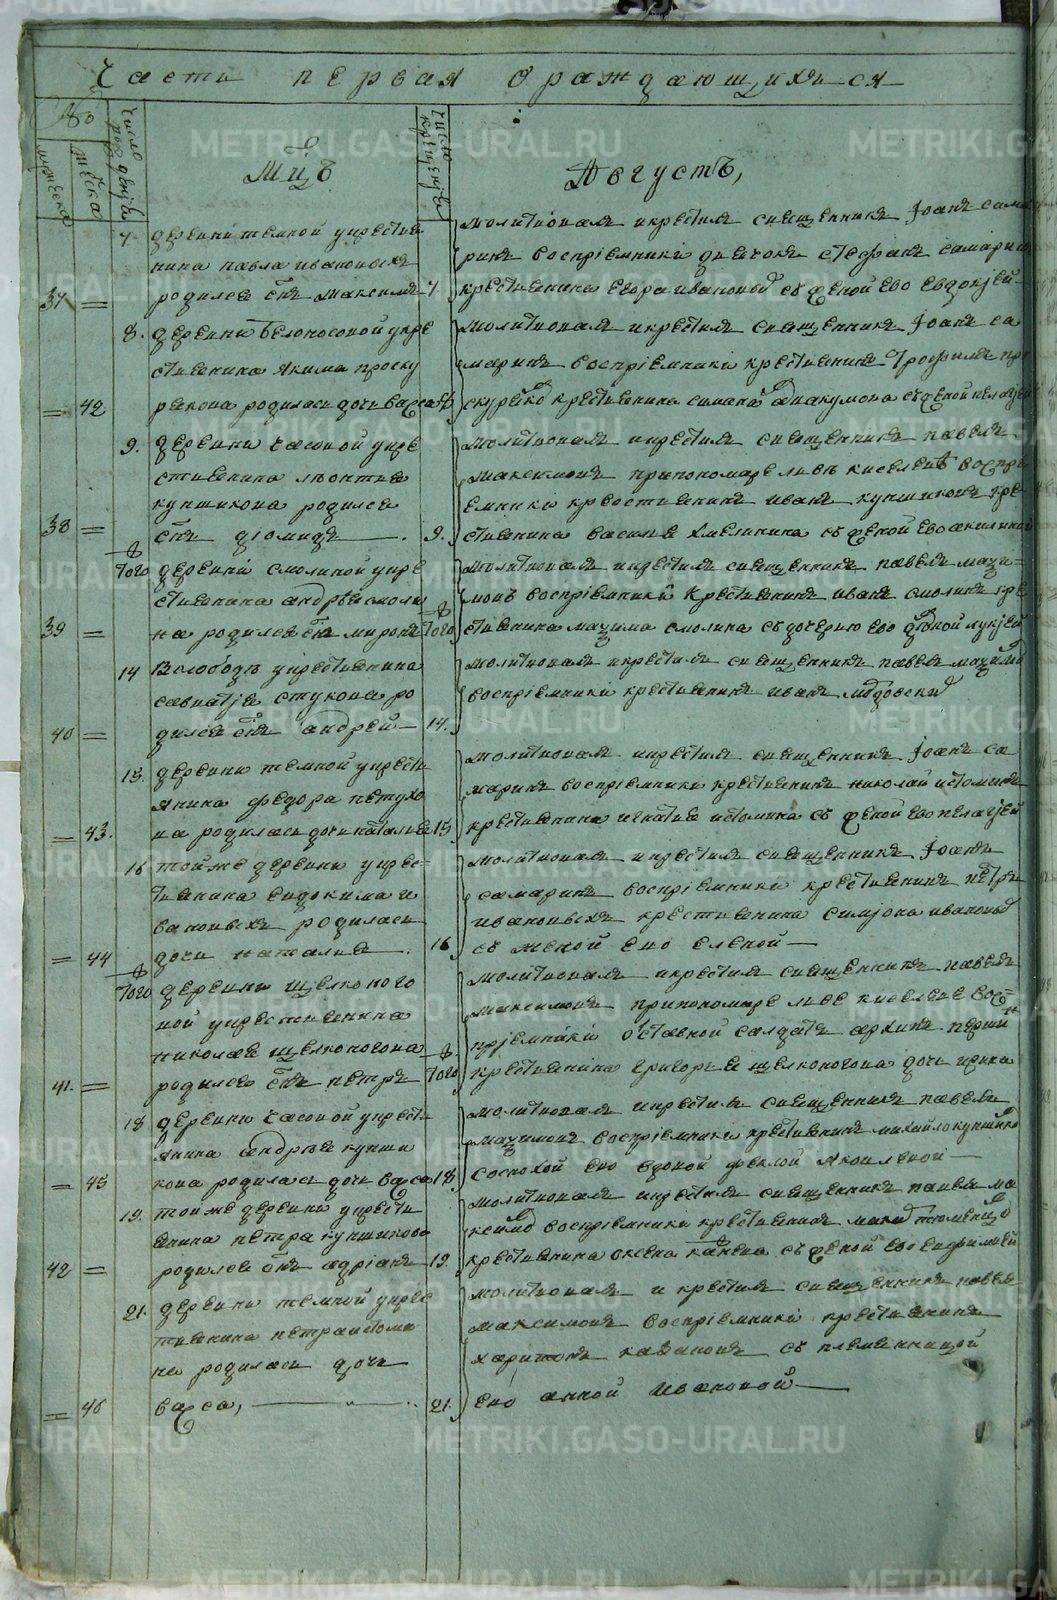 Часть первая ораждающихъся
№
мужеска
женска
Число рожденія
Мцъ
Число крещенія
Августъ,
7. деревни темной укрестья
нина павла ивановыхъ
37 = родился снъ максимъ 7.
молитвовалъ икрестилъ священникъ Іоанъ сама
ринъ воспріемники дьячокъ стефанъ самаринъ
крестьянина егора иванов съ женой ево евдокіей
8. деревни белоносовой укре
стьянина якима проску
= 42 рякова родилась дочь васса 8
молитвовалъ икрестилъ священникъ Іоанъ са
маринъ воспріемники крестьянинъ трофимъ про
скуряко крестьянина симана абакумова съ женой пелагеи
9. деревни часовой укре
стьянина леонтья
купшикова родился
38 = снъ діомидъ 9.
молитвовалъ икрестилъ священникъ павелъ
максимовъ припономаре львѣ киселевѣ воспрі
емники крестьянинъ иванъ купшиковъ кре
стьянина василья хмелинина съ женой ево акилиной
того деревни смолиной укре
стьянина андрея смоли
39 = на родился снъ миронъ того
молитвовалъ икрестилъ священникъ павелъ макси=
мовъ воспріемники крестьянинъ иванъ смолинъ кре
стьянина максима смолина съ дочерью ево девкой лукіей
14 Вслободѣ укрестьянина
савватія стукова ро
40 = дился снъ андрей 14.
молитвовалъ икрестилъ священникъ павелъ максимов
воспріемники крестьянинъ иванъ
15. деревни темной укрестья
янина федора петухо
= 43. ва родилась дочь наталья 15
молитвовалъ икрестилъ священникъ Іоанъ са
маринъ воспріемники крестьянинъ николай истоминъ
крестьянина игнатья истомина съ женой ево пелагіей
16 тойже деревни укрес=
тьянина евдокима и
вановыхъ родилась
= 44 дочь наталья. 16
молитвовалъ икрестилъ священникъ Іоанъ
самаринъ воспріемники крестьянинъ петръ
ивановыхъ крестьянина симіона иванов
съ женой ево еленой
того деревни щелконого
вой укрестьянина
николая щелконогова
41. = родился снъ петръ того
молитвовалъ икрестилъ священникъ павелъ
максимовъ припономаре льве киселеве вос=
пріемники отставной салдатъ архипъ
крестьянина григорья щелконогова дочь ирина
18 деревни часовой укрестья
янина андрея купши
= 45 кова родилась дочь васса 18
молитвовалъ икрестилъ священникъ павелъ
максимовъ воспріемники крестьянинъ михайло купшико
соснохой ево вдовой феклой яковлевой
19. тойже деревни укрестья
янина петра купшикова
42 = родился снъ адріанъ 19.
молитвовалъ икрестилъ священникъ павелъ ма
ксимо воспріемники крестьянинъ
крестьянина оксена съ женой ево евфиміей
21. деревни темной укрес
тьянина петра истоми
на родилась дочь
= 46 васса, 21.
молитвовалъ и крестилъ священникъ павелъ
максимовъ воспріемники крестьянинъ
харитонъ казаковъ съ племянницой
ево анной ивановой
METRIKI.GASO-URAL.RU